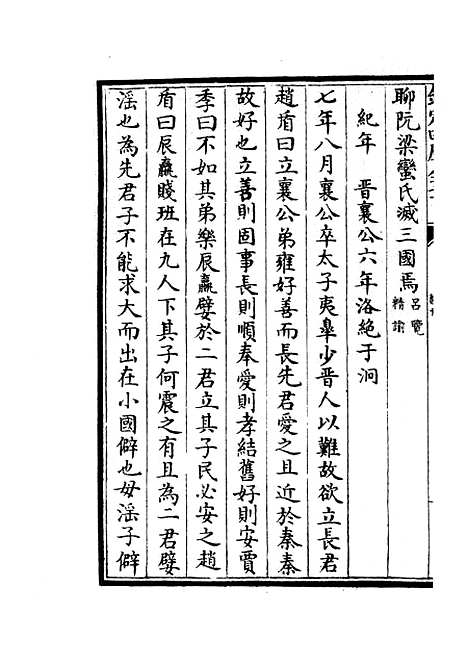 聊阮梁蠻氏滅三國焉呂覽精諭
紀年　晉襄公六年洛絕于泂
七年八月襄公卒太子夷皋少晉人以難故欲立長君
趙盾曰立襄公弟雍好善而長先君愛之且近於秦秦
故好也立善則固事長則順奉愛則孝結舊好則安賈
季曰不如其弟樂辰嬴嬖於二君立其子民必安之趙
盾曰辰嬴賤班在九人下其子何震之有且為二君嬖
淫也為先君子不能求大而出在小國僻也母淫子僻